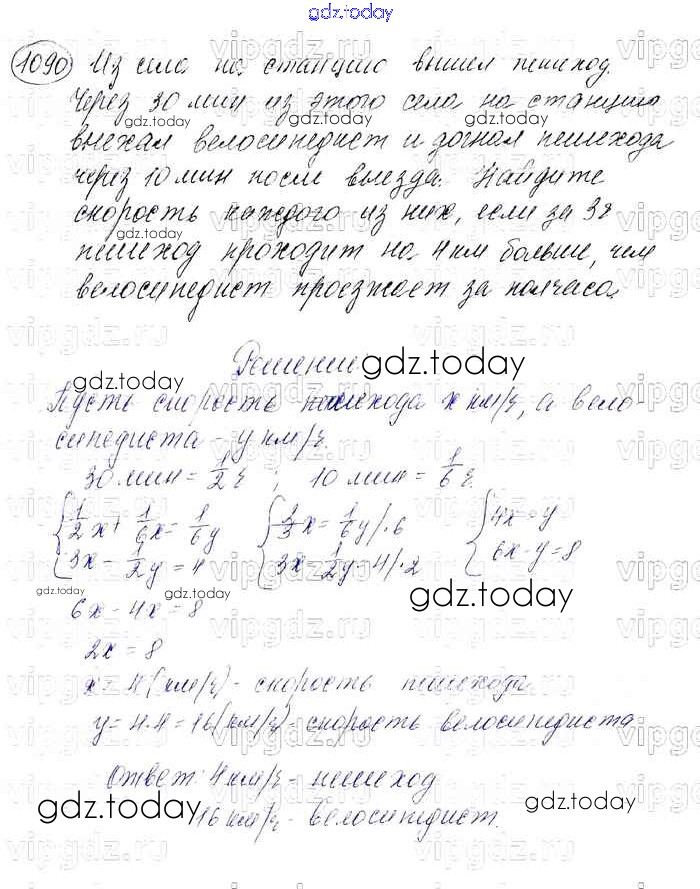 gdz.today
1090 Из села на станцию вышел пешеход.
Через 30 мин из этого села на станцию
выехал велосипедист и догнал пешехода
через 10 мин после выезда. Найдите
скорость каждого из них, если за 3ч
пешеход проходит на 4 км больше, чем
велосипедист проезжает за полчаса.
Решение
Пусть скорость пешехода x км/ч, а вело-
сипедиста - y км/ч.
30 мин = 1/2 ч ; 10 мин = 1/6 ч.
{ 1/2 x + 1/6 x = 1/6 y { 1/3 x = 1/6 y /·6 { 4x = y
{ 3x - 1/2 y = 4 { 3x - 1/2 y = 4 /·2 { 6x - y = 8
6x - 4x = 8
2x = 8
x = 4 (км/ч) - скорость пешехода
y = 4·4 = 16 (км/ч) - скорость велосипедиста
Ответ: 4 км/ч - пешеход
16 км/ч - велосипедист.